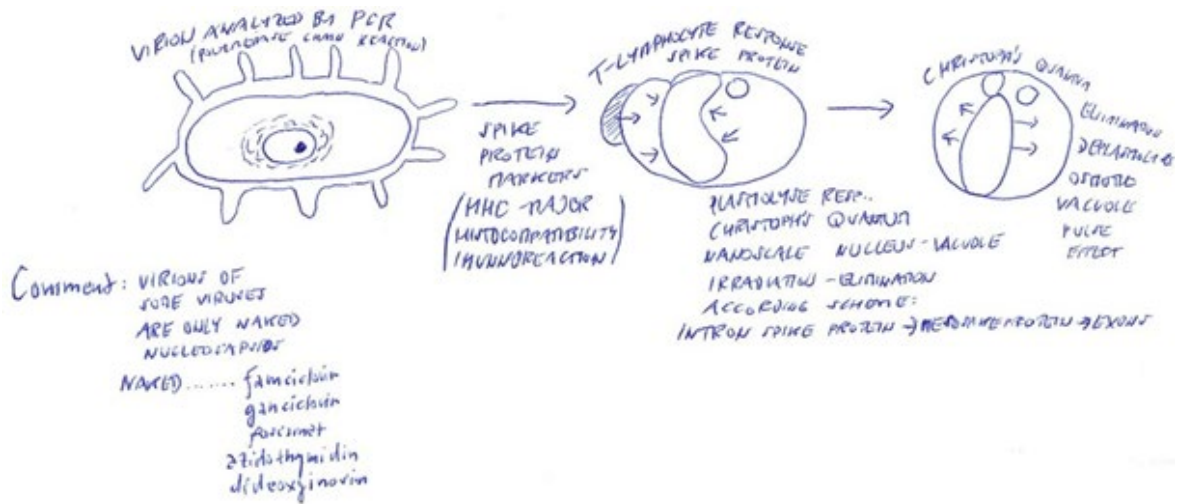 VIRION ANALYZED BY PCR
(POLYMERASE CHAIN REACTION)
SPIKE
PROTEIN
MARKERS
(MHC-MAJOR
HISTOCOMPATIBILITY
IMUNNOREACTION)
T-LYMPHOLYTE RESPONSE
SPIKE PROTEIN
PLASMOLYSE RESP..
CHRISTOPH'S QUANTUM
NANOSCALE NUCLEUS-VACUOLE
IRRADIATION-ELIMINATION
ACCORDING SCHEME:
INTRON SPIKE PROTEIN → PROTEIN → EXONS
CHRISTOPH'S QUANTUM
ELIMINATION
OSMOTIC
VACUOLE
PULSE
EFFECT
Comment: VIRIONS OF
SOME VIRUSES
ARE ONLY NAKED
NUCLEOCAPSIDS
NAKED....... famciclovir
ganciclovir
foscarnet
azidothymidin
dideoxyinosin